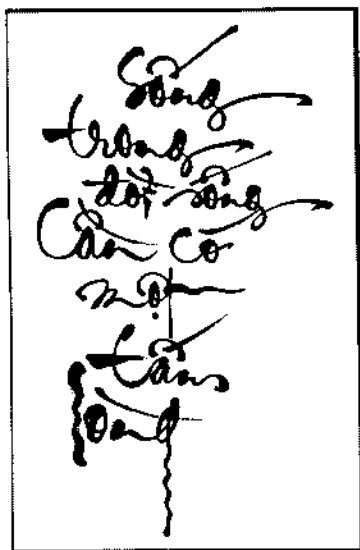 Sống
trong
đời sống
Cần có
một
tấm
lòng